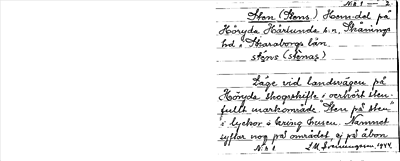 N:o 1 — 2
Sten (Stens). Hem.del på
Höryda Härlunda s:n, Skånings
hd, Skaraborgs län.
sténs (sténas)
Läge vid landsvägen på
Höryda skogsskifte i oerhört sten-
fullt markområde. "Sten på sten"
i lyckor o kring husen. Namnet
syftar nog på området, ej på åbon
N:o 1 1944